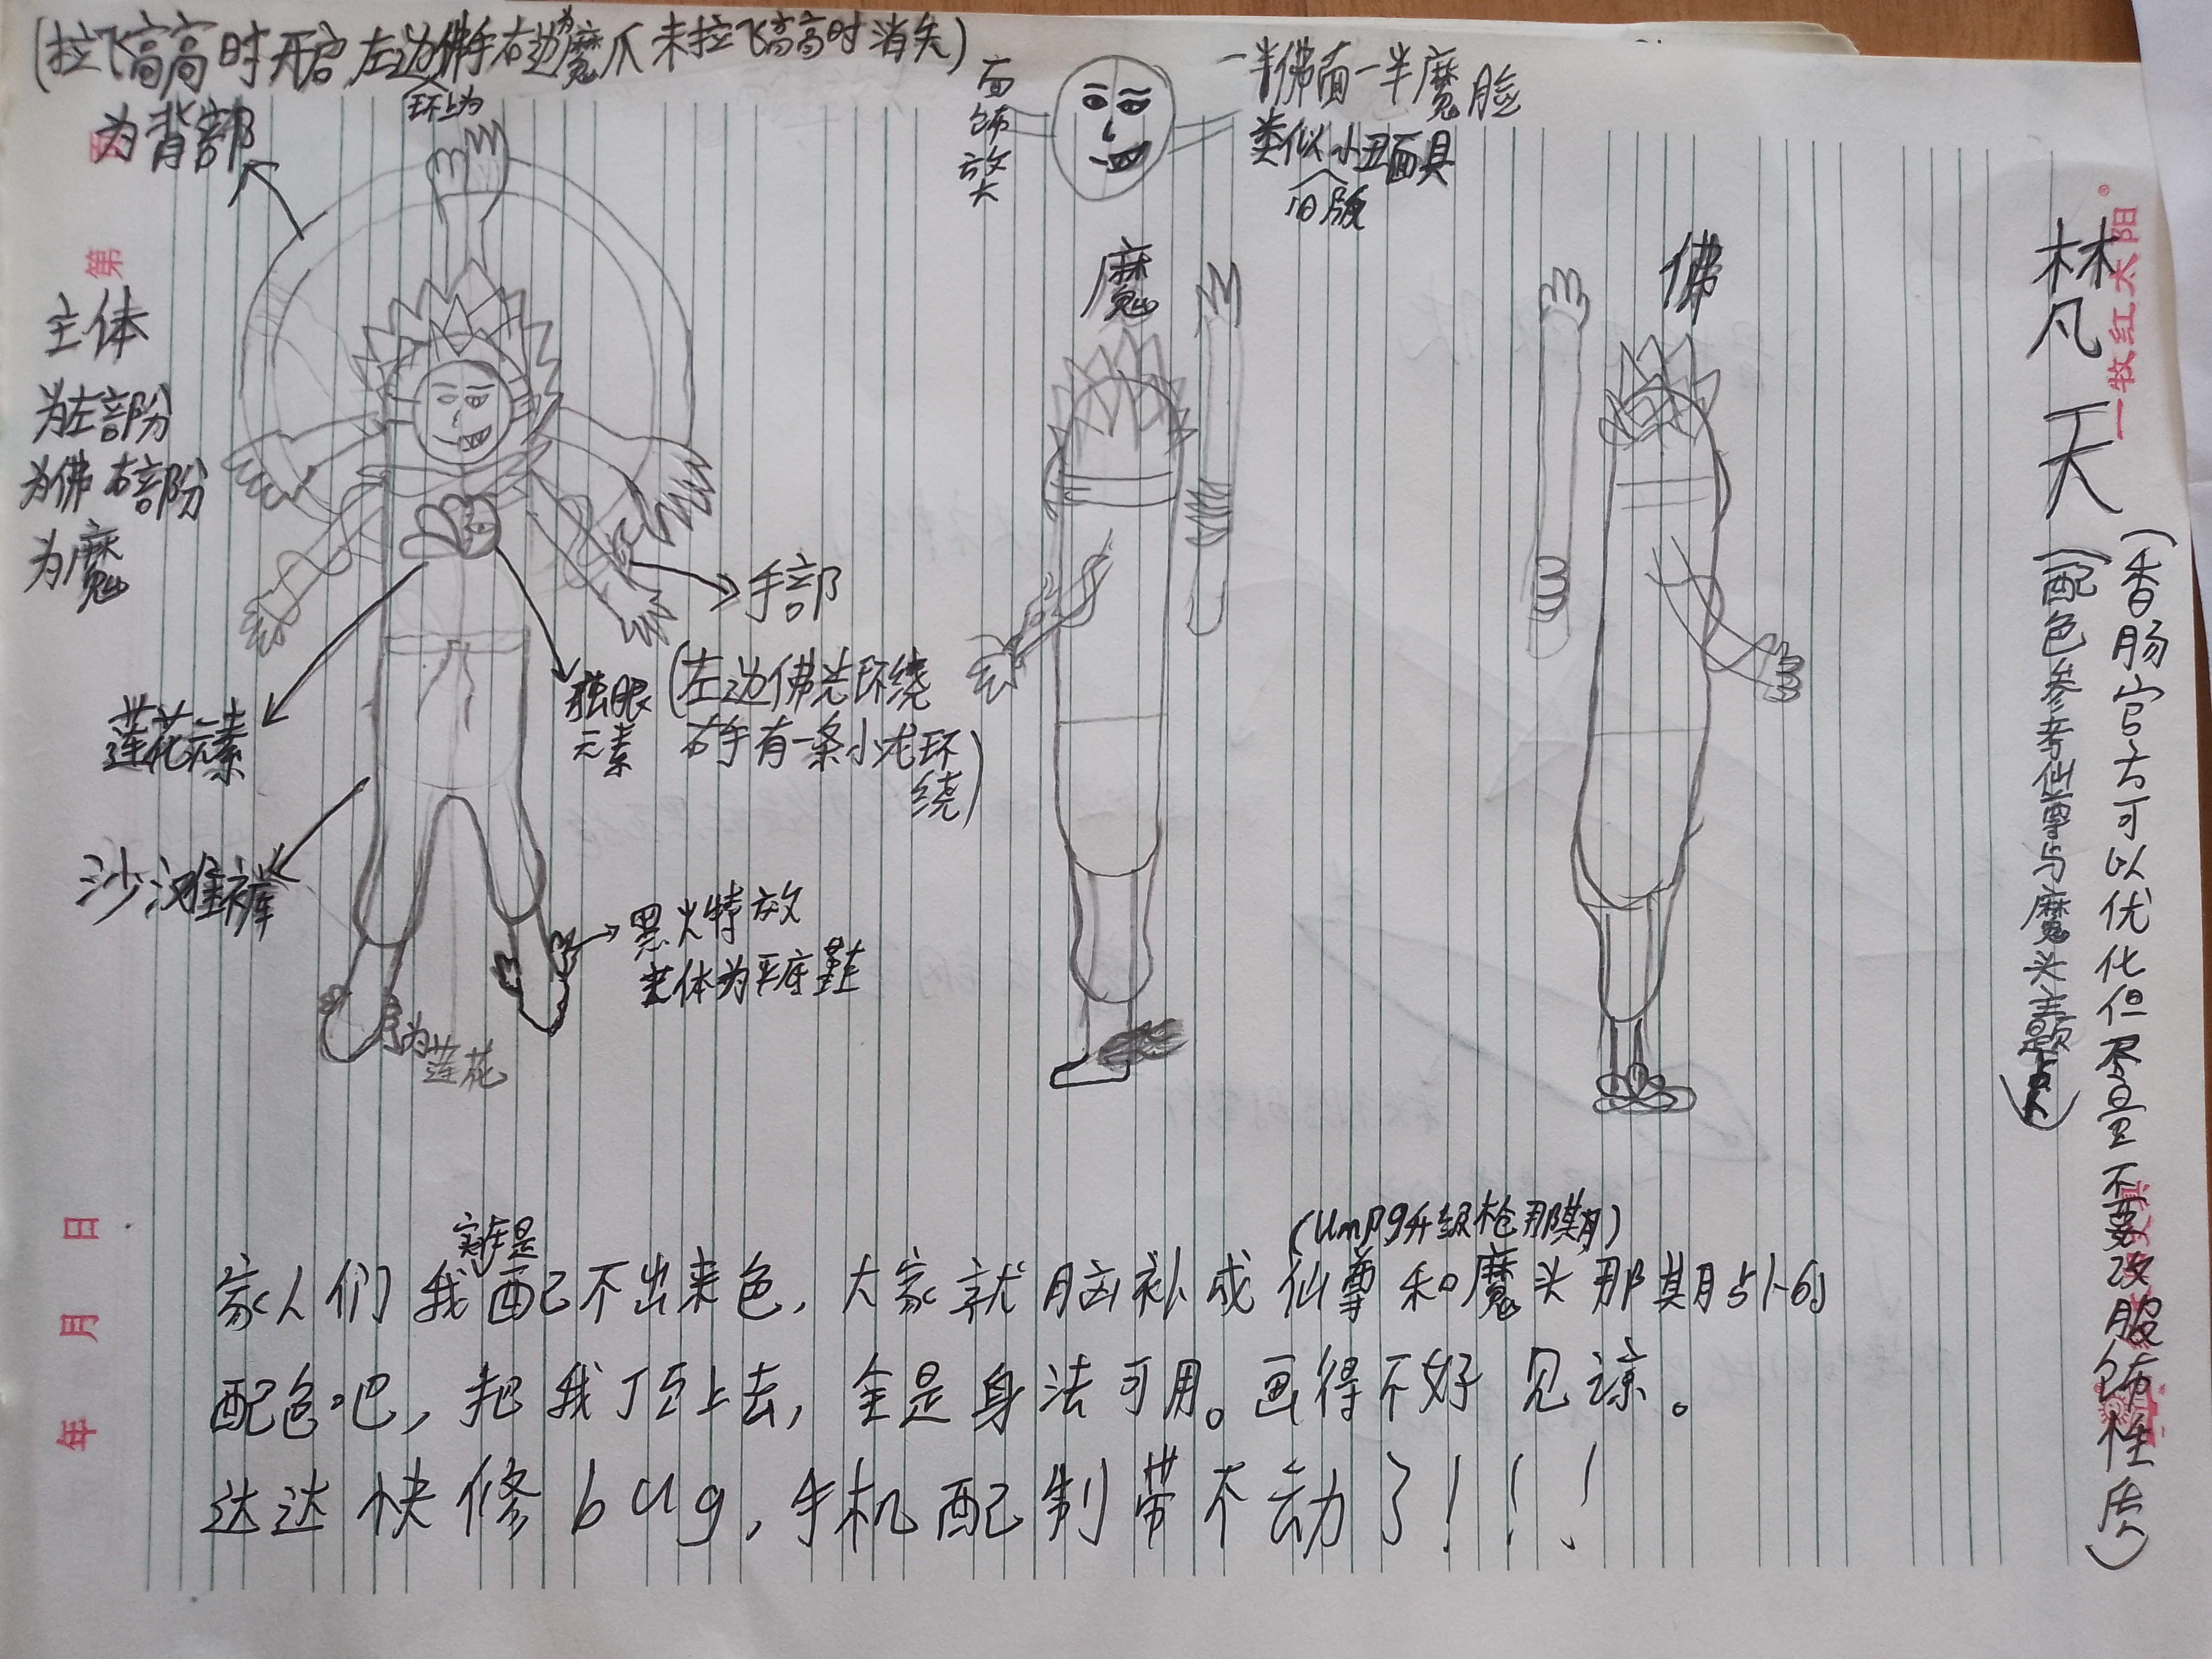 (拉飞高高时开启 左边佛手右边为魔爪 未拉飞高高时消失)
环上为
为背部
面饰放大
一半佛面一半魔脸
类似小丑面具
旧版
魔
佛
林凡天
(香肠官方可以优化但尽量不要改服饰性质)
(配色参考仙尊与魔头主题)
主体
为左部分
为佛 右部份
为魔
手部
(左边佛光环绕
右手有一条小龙环
绕)
独眼
元素
莲花元素
沙滩裤
黑火特效
主体为平底鞋
为莲花
实在是
(Ump9升级枪那期)
家人们 我配不出来色, 大家就脑补成仙尊和魔头那期
配色吧, 把我顶上去, 全是身法可用。画得不好 见谅。
达达快修bug, 手机配制带不动了!!!
第
年 月 日
一枚红太阳